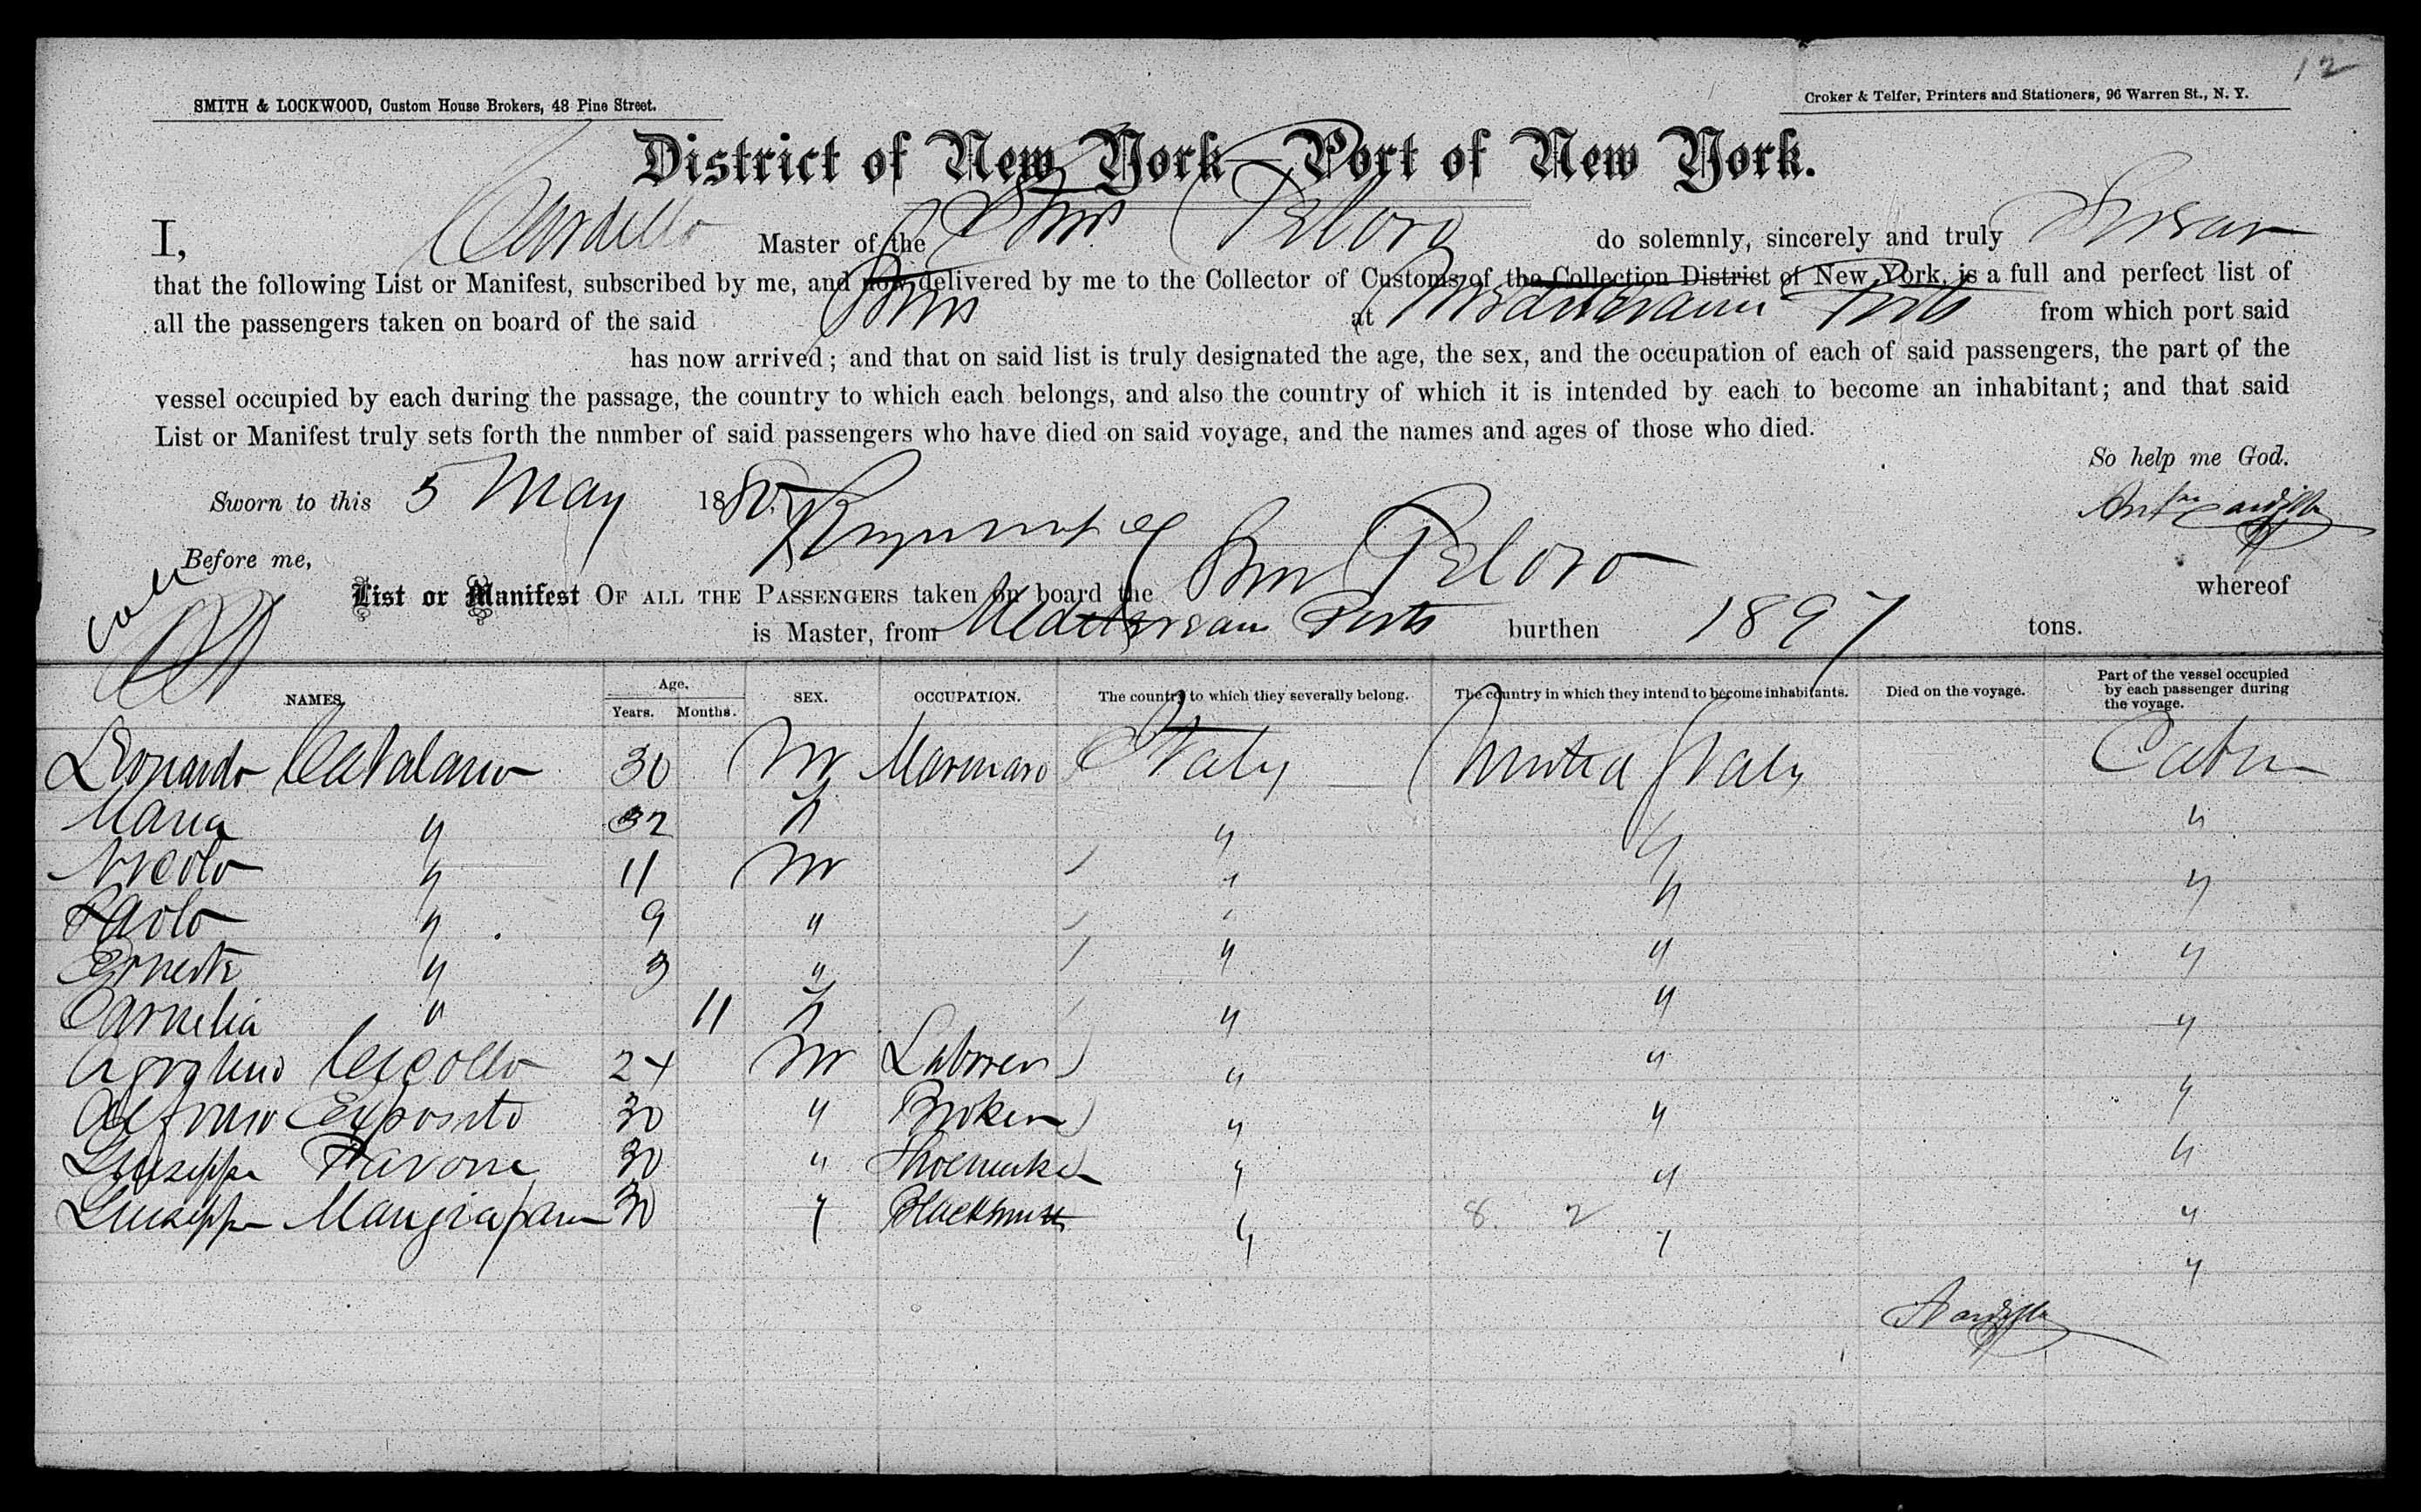 12
SMITH & LOCKWOOD, Custom House Brokers, 48 Pine Street.
Croker & Telfer, Printers and Stationers, 96 Warren St., N. Y.
District of New York—Port of New York.
I, Cardillo Master of the Peloro do solemnly, sincerely and truly Swear
that the following List or Manifest, subscribed by me, and now delivered by me to the Collector of Customs of the Collection District of New York, is a full and perfect list of
all the passengers taken on board of the said at Mediterranean Ports from which port said
has now arrived; and that on said list is truly designated the age, the sex, and the occupation of each of said passengers, the part of the
vessel occupied by each during the passage, the country to which each belongs, and also the country of which it is intended by each to become an inhabitant; and that said
List or Manifest truly sets forth the number of said passengers who have died on said voyage, and the names and ages of those who died.
So help me God.
Sworn to this 5 May 1880
Before me,
List or Manifest OF ALL THE PASSENGERS taken on board the Peloro whereof
is Master, from Mediterrean Ports burthen 1897 tons.
NAMES. Age. Years. Months. SEX. OCCUPATION. The country to which they severally belong. The country in which they intend to become inhabitants. Died on the voyage. Part of the vessel occupied by each passenger during the voyage.
Leonardo Catalano 30 M Marinaro Italy Italy Cabin
Maria " 32 f " " "
Nicolo " 11 M " " "
Paolo " 9 " " " "
Ernesto " 3 " " " "
Carmelia " 11 f " " "
24 M Laborer " " "
Alfonso Exposito 30 " Broker " " "
Giuseppe Pavone 30 " Shoemaker " " "
Giuseppe Mangiapane 30 " Blacksmith " " "
8. 2